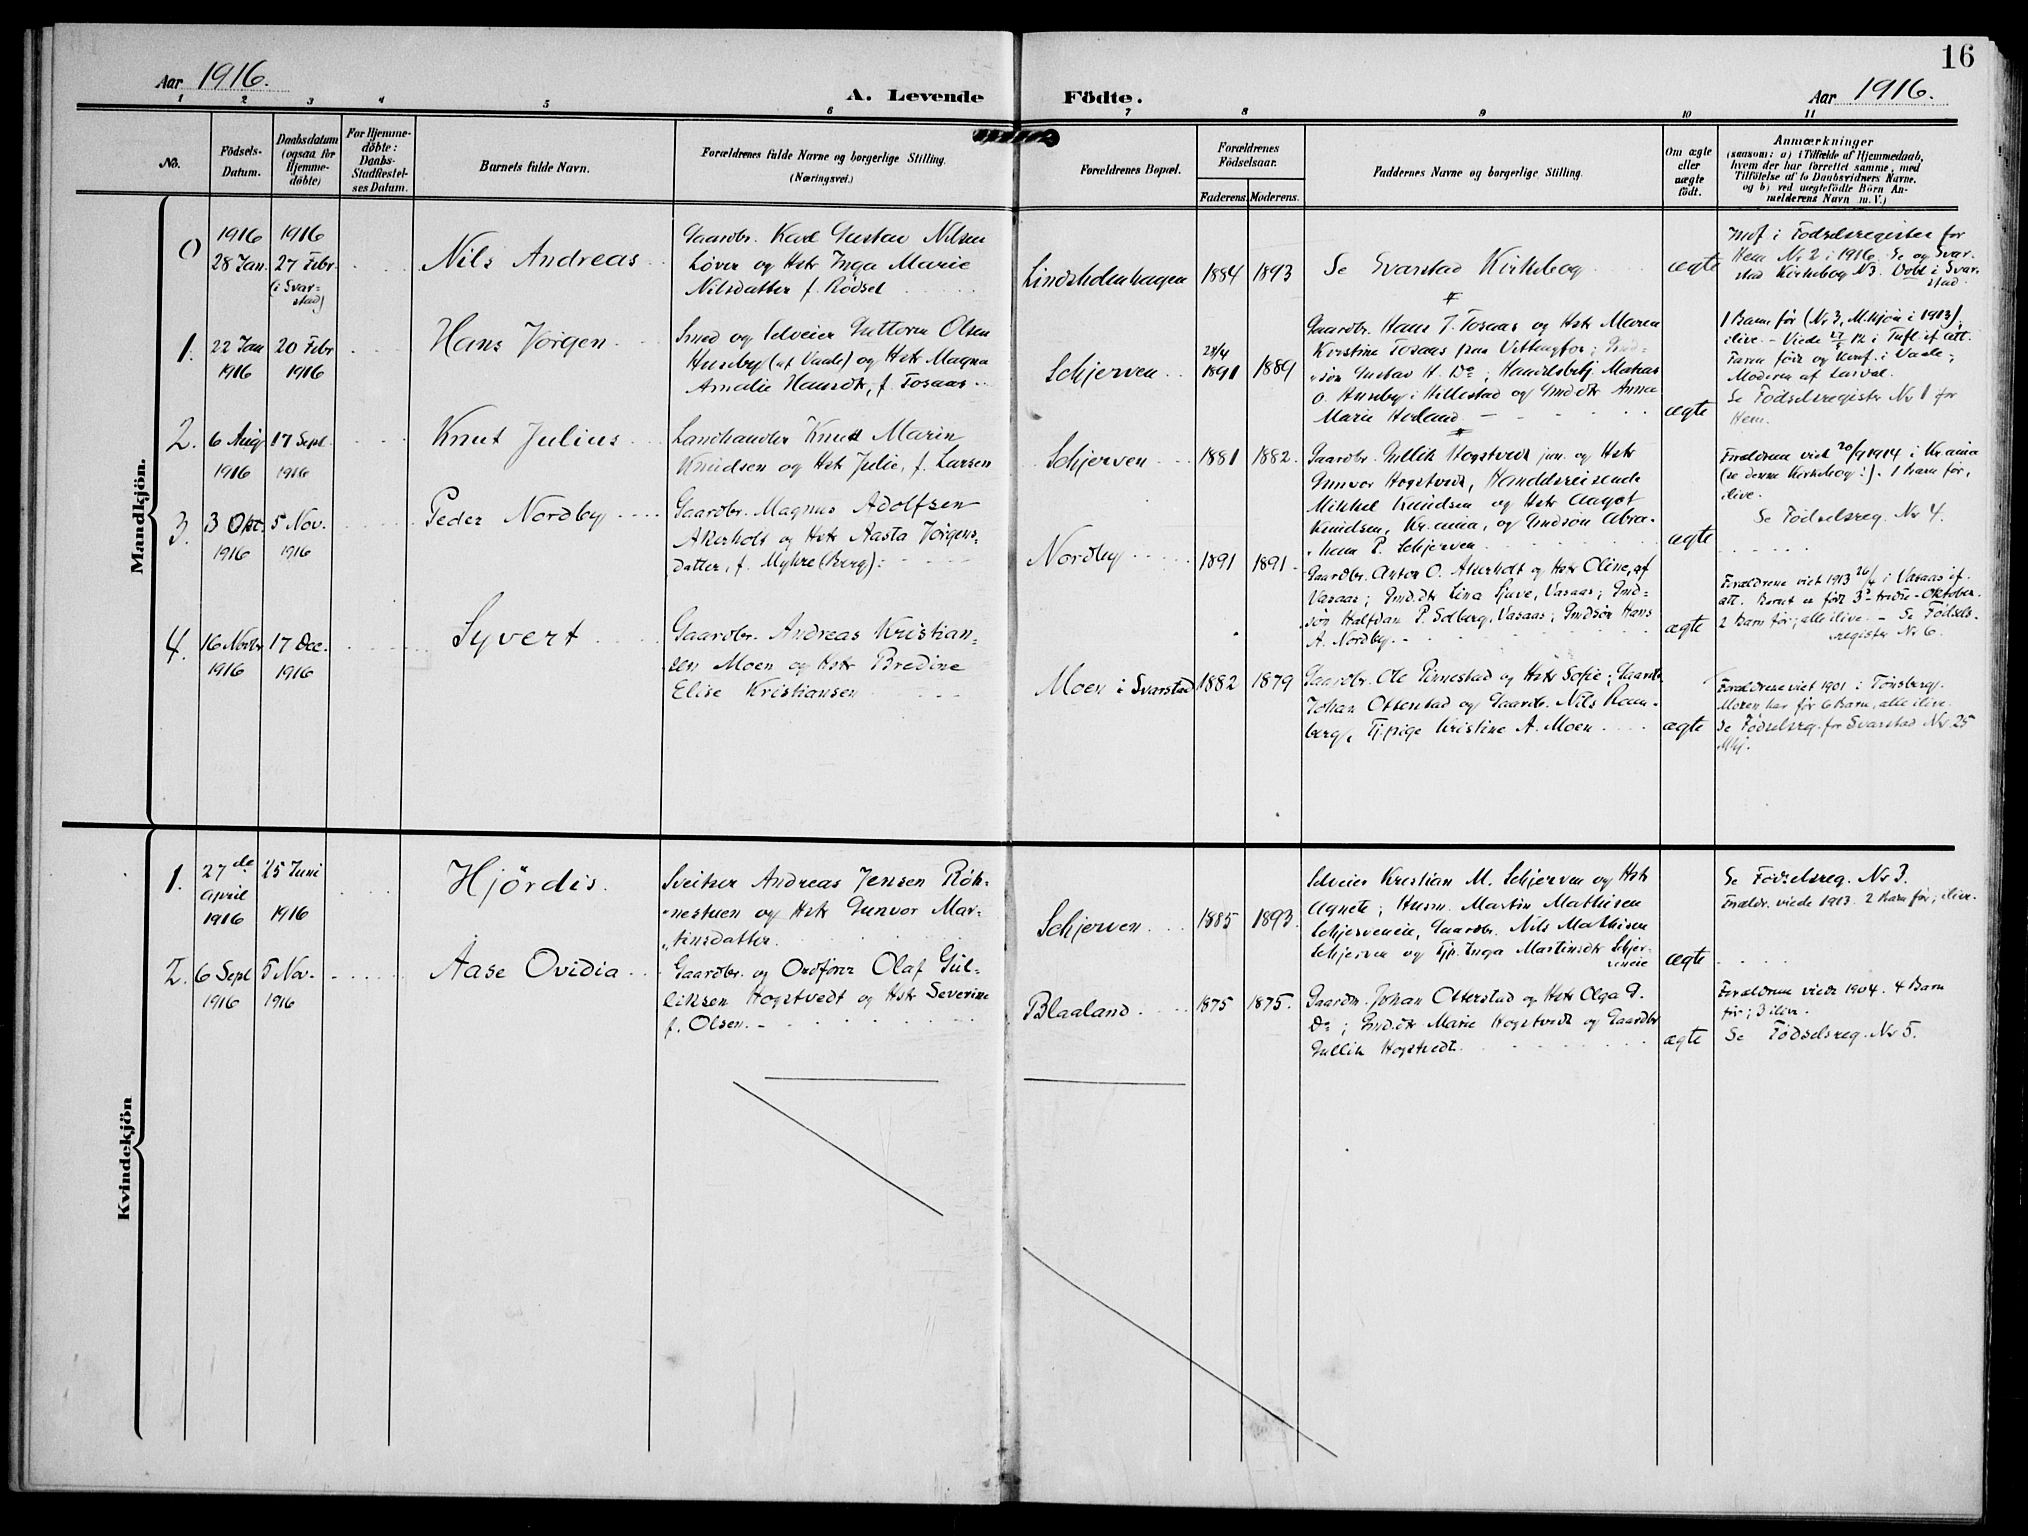 16
Aar 1916.
A. Levende Födte.
Aar 1916.
1 2 3 4 5 6 7 8 9 10 11
No.
Födsels-
Datum.
Daabsdatum
(ogsaa for
Hjemme-
döbte)
For Hjemme-
döbte:
Daabs-
Stadfæstel-
ses Datum.
Barnets fulde Navn.
Forældrenes fulde Navne og borgerlige Stilling.
(Næringsvei.)
Forældrenes Bopæl.
Forældrenes
Födselsaar.
Faderens. Moderens.
Faddernes Navne og borgerlige Stilling.
Om ægte
eller
uægte
födt.
Anmærkninger
(saasom: a) i Tilfælde af Hjemmedaab,
hvem der har forrettet samme, med
Tilföielse af to Daabsvidners Navne.
og b) ved uægtefödte Börn An-
melderens Navn m. V.)
Mandkjön.
0
1916
28 Jan.
1916
27 Febr.
(i Svar-
stad)
Nils Andreas
Gaardbr. Karl Gustav Nilsen
Løver og Hstr Inga Marie
Nilsdatter f. Rødsel
Lindsholenhagen
1884 1893
Se Svarstad Kirkebog
ægte
Indf i Fødselsregister for
Hem Nr 2 i 1916. Se og Svar-
stad Kirkebog N3. Døbt i Svar-
stad.
1.
22 Jan
1916
20 Febr
1916
Hans Jörgen
Smed og Selveier Guttorm Olsen
Huseby (af Vaale) og Hstr Magna
Amalie Hansdtr, f. Tosaas
Schjerven
24/4
1891
1889
Gaardbr. Hans J. Tosaas og Hstr Maren
Kristine Tosaas paa Vittingfos; Gmd-
søn Gustav H. Do; Handelsbetj. Mathias
O. Huseby i Hillestad og Gmd dtr Anna
Marie Hovland
ægte
1 Barn før (Nr 3, M.kjøn i 1913),
ilive. - Viede 27/5 12 i Tufl. if. att.
Faren født og Konf. i Vaale;
Moderen af Larval.
Se Fødselsregister Nr 1 for
Hem.
2.
6 Aug
1916
17 Sept
1916
Knut Julius
Landhandler Knut Marin
Knudsen og Hstr Julie, f. Larsen
Schjerven
1881 1882.
Gaardbr. Gullik Hogstvedt jun. og Hstr
Gunvor Hogstvedt, Handelsreisende
Mikkel Knudsen og Hstr Aagot
Knudsen, Kr.ania, og Gmdsøn Abra-
ham P. Schjerven
ægte
Forældrene viet 20/9 1914 i Kr.ania
(se denne Kirkebog!). 1 Barn før,
ilive.
Se Fødselsreg. Nr 4.
3.
3 Okt.
1916
5 Nov.
1916
Peder Nordby
Gaardbr. Magnus Adolfsen
Akerholt og Hstr Aasta Jörgens-
datter, f. Myhre (Berg)
Nordby
1891 1891
Gaardbr. Anton O. Akerholt og Hstr Oline, af
Vasaas; Gmd.dtr Lina Gjuve, Vasaas; Gmd-
søn Halfdan P. Solberg, Vasaas; Gmdsøn Hans
A. Nordby
ægte
Forældrene viet 1913 26/4 i Vasaas if.
att. Barnet er født 3' - tredie - Oktober.
2 Barn før; alle ilive. - Se Fødsels-
register Nr 6.
4.
16 Novbr
1916
17 Dec.
1916
Syvert
Gaardbr. Andreas Kristian-
sen Moen og Hstr Bredine
Elise Kristiansen
Moen i Svarstad
1882 1879
Gaardbr. Ole Pinnestad og Hstr Sofie; Gaardb.
Johan Otterstad og Gaardb. Nils Ram-
berg, Tj.pige Kristine A. Moen
ægte
Forældrene viet 1901 i Tønsberg.
Moren har før 6 Barn, alle ilive.
Se Fødselsreg. for Svarstad Nr 25
Mkj.
Kvindekjön
1.
27de
April
1916
25 Juni
1916
Hjördis.
Sveitser Andreas Jensen Røn-
nestuen og Hstr Gunvor Mar-
tinsdatter
Schjerven
1885 1893
Selveier Kristian M. Schjerven og Hstr
Agnete; Husm. Martin Mathisen
Schjerveneie, Gaardbr. Nils Mathisen
Schjerven og Tjp. Inga Martinsdtr Schjer-
veneie
ægte
Se Fødselsreg. Nr 3.
Forældr. viede 1913. 2 Barn før; ilive.
2.
6 Sept
1916
5 Nov.
1916
Aase Ovidia
Gaardbr. og Ordfører Olaf Gul-
liksen Hogstvedt og Hstr Severine
f. Olsen.
Blaaland
1875 1875.
Gaardm. Johan Otterstad og Hstr Olga G.
Do; Gmd.dtr Marie Hogstvedt og Gaardbr
Gullik Hogstvedt.
ægte
Forældrene viede 1904. 4 Barn
før; 3 ilive.
Se Fødselsreg. Nr 5.